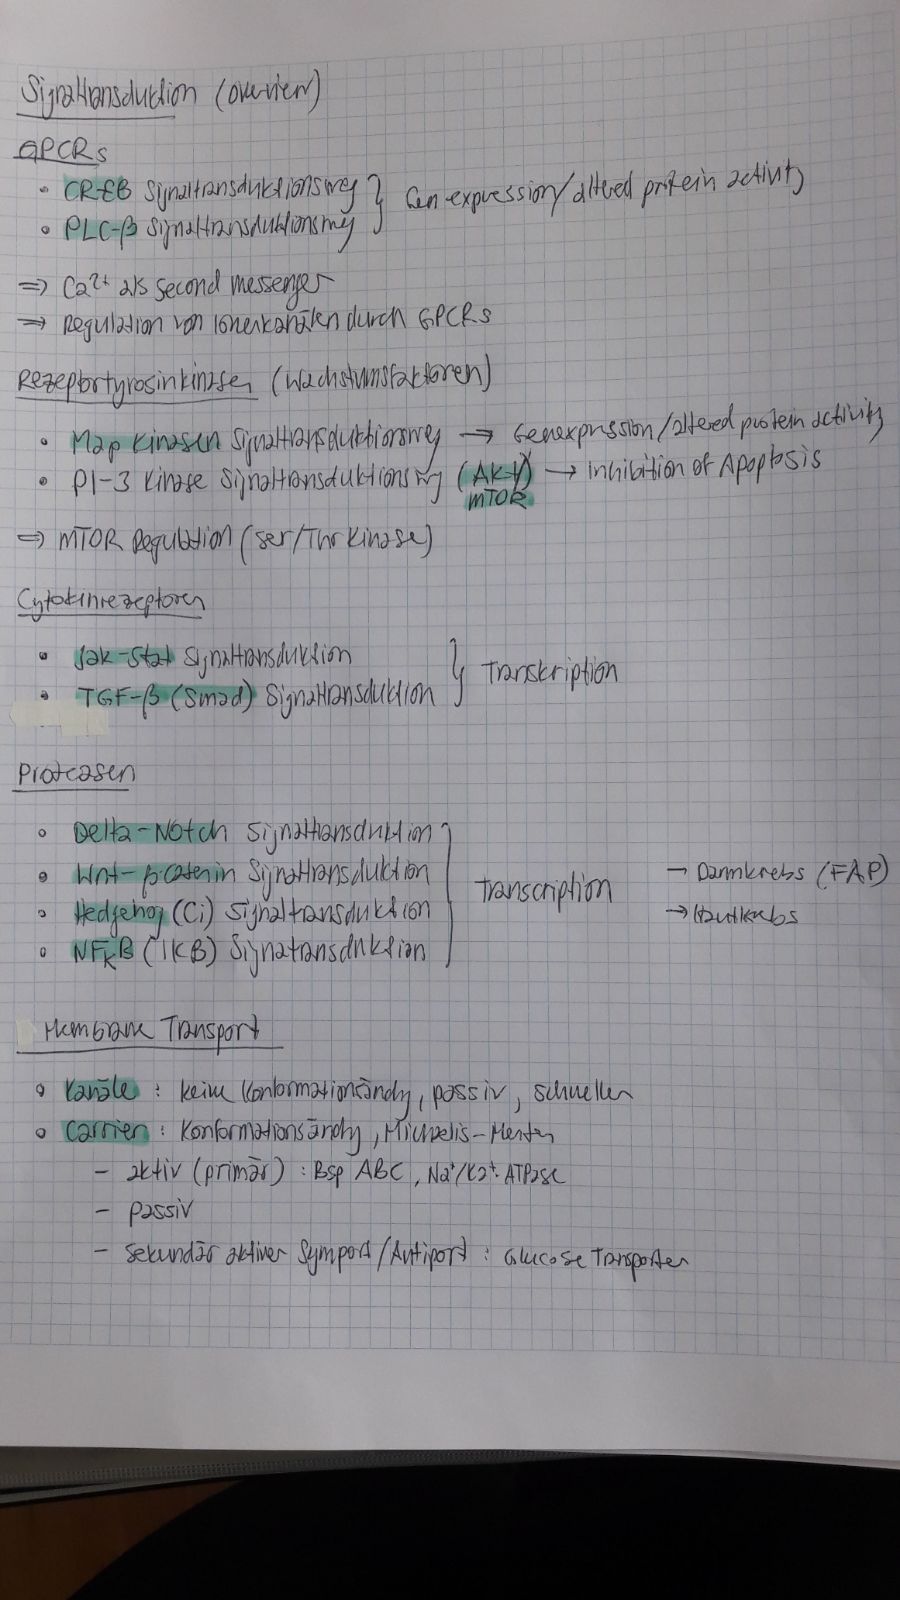 Signaltransduktion (overview)
GPCRs
• CREB Signaltransduktionsweg } Genexpression/altered protein activity
• PLC-β Signaltransduktionsweg
⇒ Ca²⁺ als second messenger
⇒ Regulation von Ionenkanälen durch GPCRs
Rezeptortyrosinkinasen (Wachstumsfaktoren)
• Map Kinasen Signaltransduktionsweg → Genexpression/altered protein activity
• PI-3 Kinase Signaltransduktionsweg (AKT) → Inhibition of Apoptosis
mTOR
⇒ mTOR Regulation (Ser/Thr Kinase)
Cytokinrezeptoren
• Jak-Stat Signaltransduktion } Transkription
• TGF-β (Smad) Signaltransduktion
Proteasen
• Delta-Notch Signaltransduktion
• Wnt-βcatenin Signaltransduktion } Transcription → Darmkrebs (FAP)
• Hedgehog (Ci) Signaltransduktion → Hautkrebs
• NFκB (IKB) Signaltransduktion
Membrane Transport
• Kanäle : keine Konformationsändg, passiv, schneller
• Carrier : Konformationsändg, Michaelis-Menten
– aktiv (primär) : Bsp ABC, Na⁺/K2⁺-ATPase
– passiv
– sekundär aktiver Symport/Antiport : Glucose Transporter